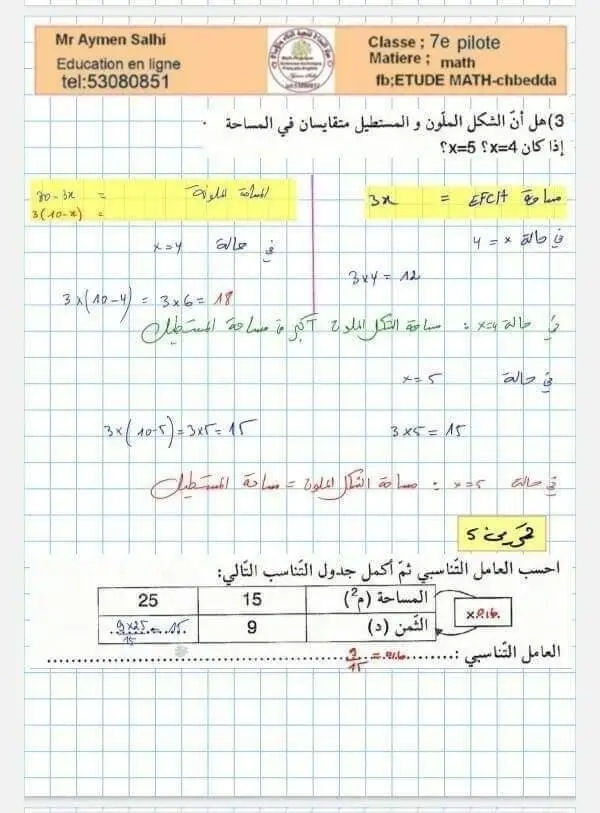 Mr Aymen Salhi
Education en ligne
tel:53080851
Classe ; 7e pilote
Matiere ; math
fb;ETUDE MATH-chbedda
3) هل أنّ الشكل الملّون و المستطيل متقايسان في المساحة
إذا كان x=4؟ x=5؟
مساحة EFCH = 3x
المساحة الملونة = 30-3x
= 3(10-x)
في حالة x = 4
3x4 = 12
في حالة x=4
3x(10-4) = 3x6 = 18
في حالة x=4 : مساحة الشكل الملون أكبر من مساحة المستطيل
في حالة x=5
3x5 = 15
3x(10-5)=3x5=15
في حالة x=5 : مساحة الشكل الملون = مساحة المستطيل
تمرين 5
احسب العامل التّناسبي ثمّ أكمل جدول التّناسب التّالي:
المساحة (م²) 15 25
الثّمن (د) 9 9x25/15 = 15
x0,6
العامل التّناسبي : 9/15 = 0,6